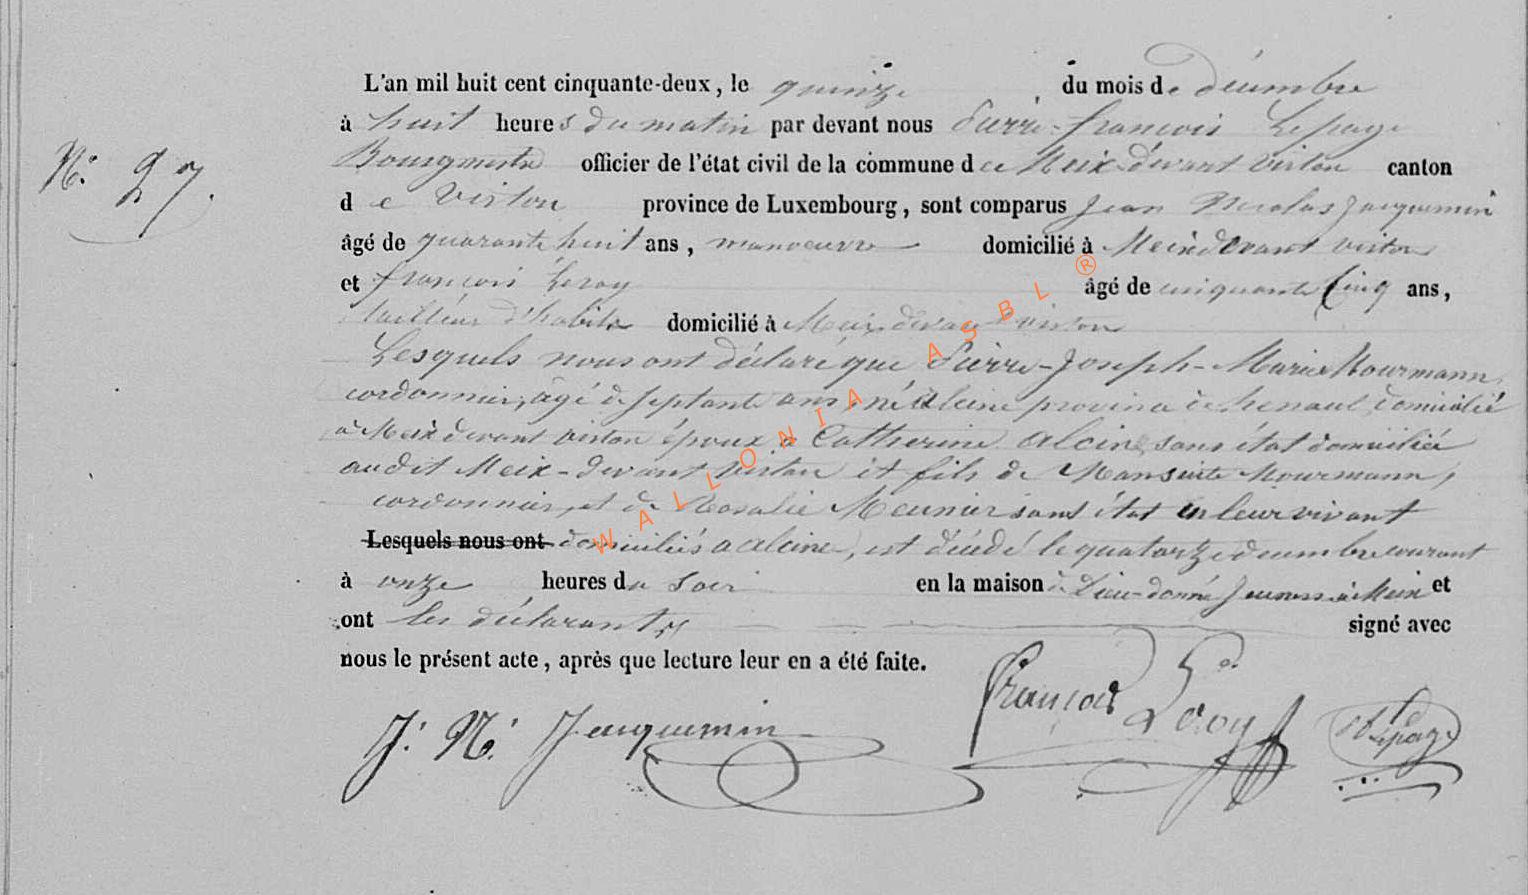 L'an mil huit cent cinquante-deux, le quinze du mois de décembre
à huit heures du matin par devant nous Pierre-françois Lepage
N.º 27. Bourgmestre officier de l'état civil de la commune de Meix-devant virton canton
de Virton province de Luxembourg, sont comparus Jean Nicolas Jacquemin
âgé de quarante huit ans, manoeuvre domicilié à Meix devant virton
et françois Leroy âgé de cinquante Cinq ans,
tailleur d'habits domicilié à Meix devant virton
Lesquels nous ont déclaré que Pierre-Joseph-Marie Mourmann,
cordonnier, âgé de septante ans, né à leine province de henaut, domicilié
à Meix devant virton époux à Catherine alcine, sans état domiciliée
audit Meix-devant virton et fils de Mansuite Mourmann,
cordonnier, et de Rosalie Meunier sans état en leur vivant
Lesquels nous ont domiciliés a aleine, est décédé le quatorze décembre courant
à onze heures du soir en la maison de Dieu-donné à Meix et
ont les déclarants signé avec
nous le présent acte, après que lecture leur en a été faite.
J. N. Jacquemin
françois Leroy
Lepage
WALLONIA ASBL ®